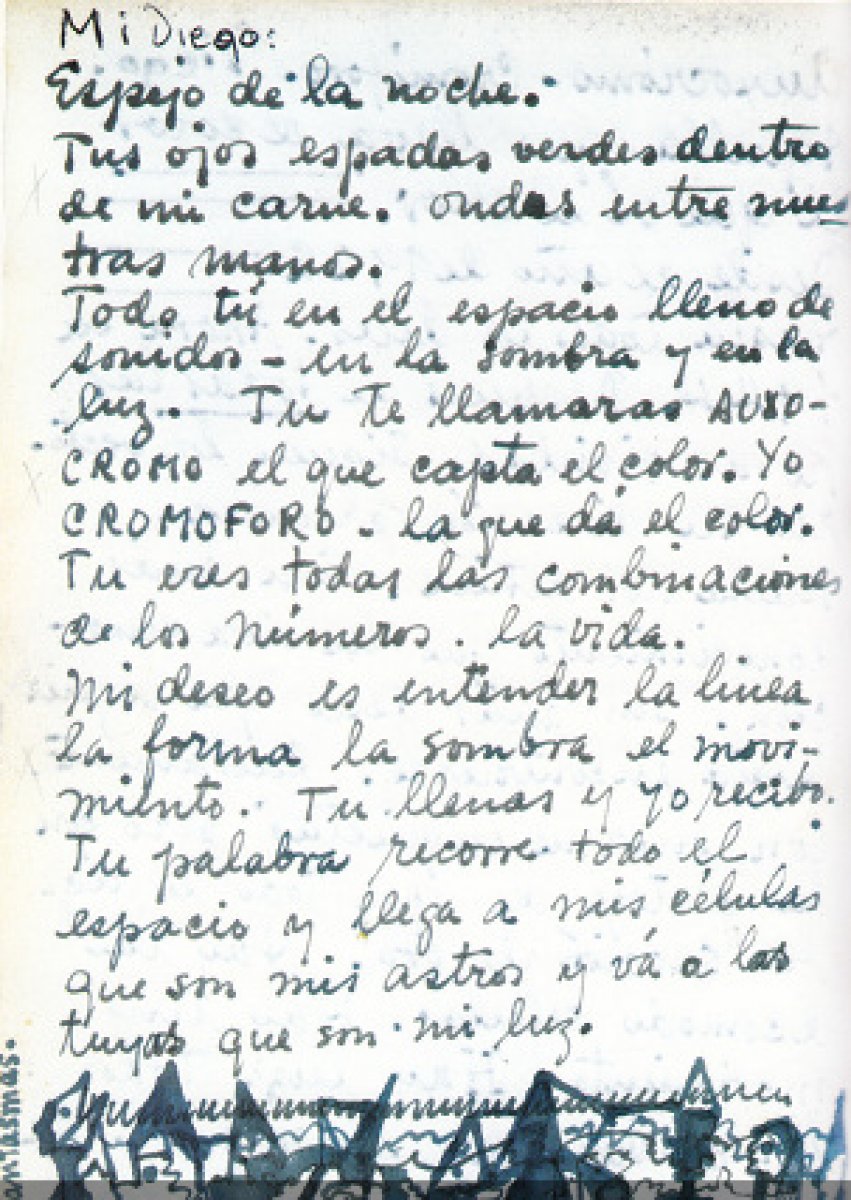 Mi Diego:
Espejo de la noche.
Tus ojos espadas verdes dentro
de mi carne. ondas entre nues
tras manos.
Todo tú en el espacio lleno de
sonidos – en la sombra y en la
luz. Tu te llamaras AUXO-
CROMO el que capta el color. Yo
CROMOFORO – la que dá el color.
Tu eres todas las combinaciones
de los números. la vida.
Mi deseo es entender la linea
la forma la sombra el movi-
miento. Tu llenas y yo recibo.
Tu palabra recorre todo el
espacio y llega a mis células
que son mis astros y vá a las
tuyas que son mi luz.